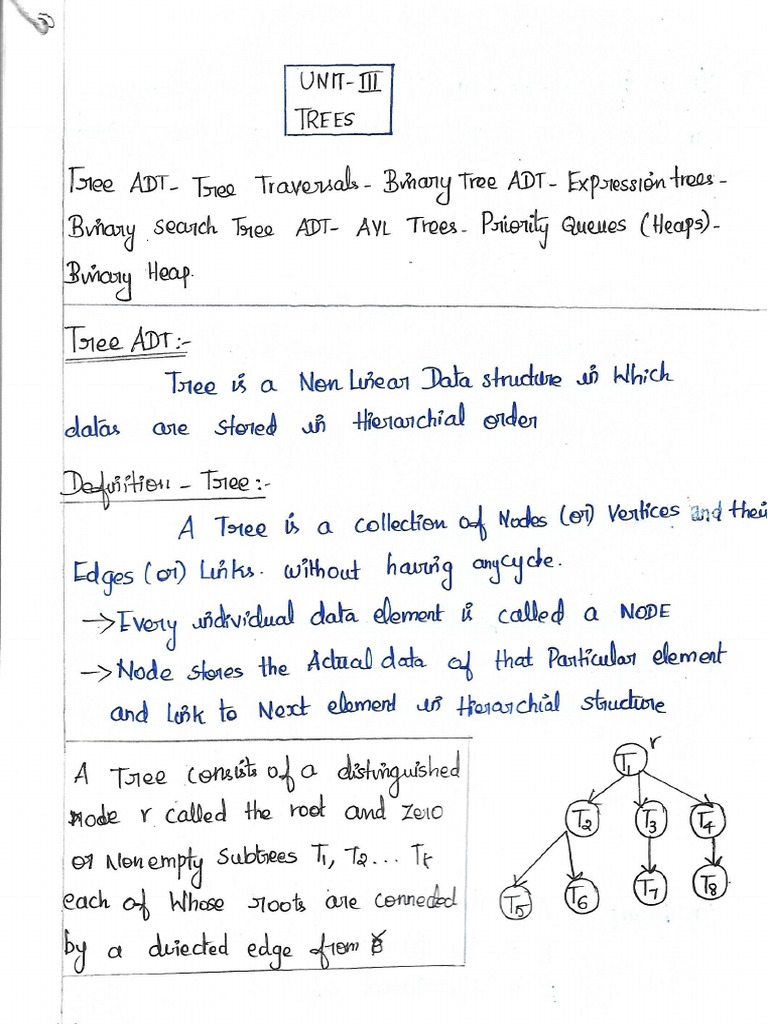 UNIT-III
TREES
Tree ADT- Tree Traversals- Binary Tree ADT- Expression trees-
Binary search Tree ADT- AVL Trees- Priority Queues (Heaps)-
Binary Heap.
Tree ADT:-
Tree is a Non Linear Data structure in Which
datas are stored in Hierarchial order
Definition - Tree:-
A Tree is a collection of Nodes (or) Vertices and their
Edges (or) Links. without having anycycle.
→ Every individual data element is called a NODE
→ Node stores the Actual data of that Particular element
and link to Next element in Hierarchial structure
A Tree consists of a distinguished
node r called the root and zero
or Nonempty Subtrees T1, T2... Tk
each of Whose roots are connected
by a directed edge from
r
T1
T2 T3 T4
T5 T6 T7 T8